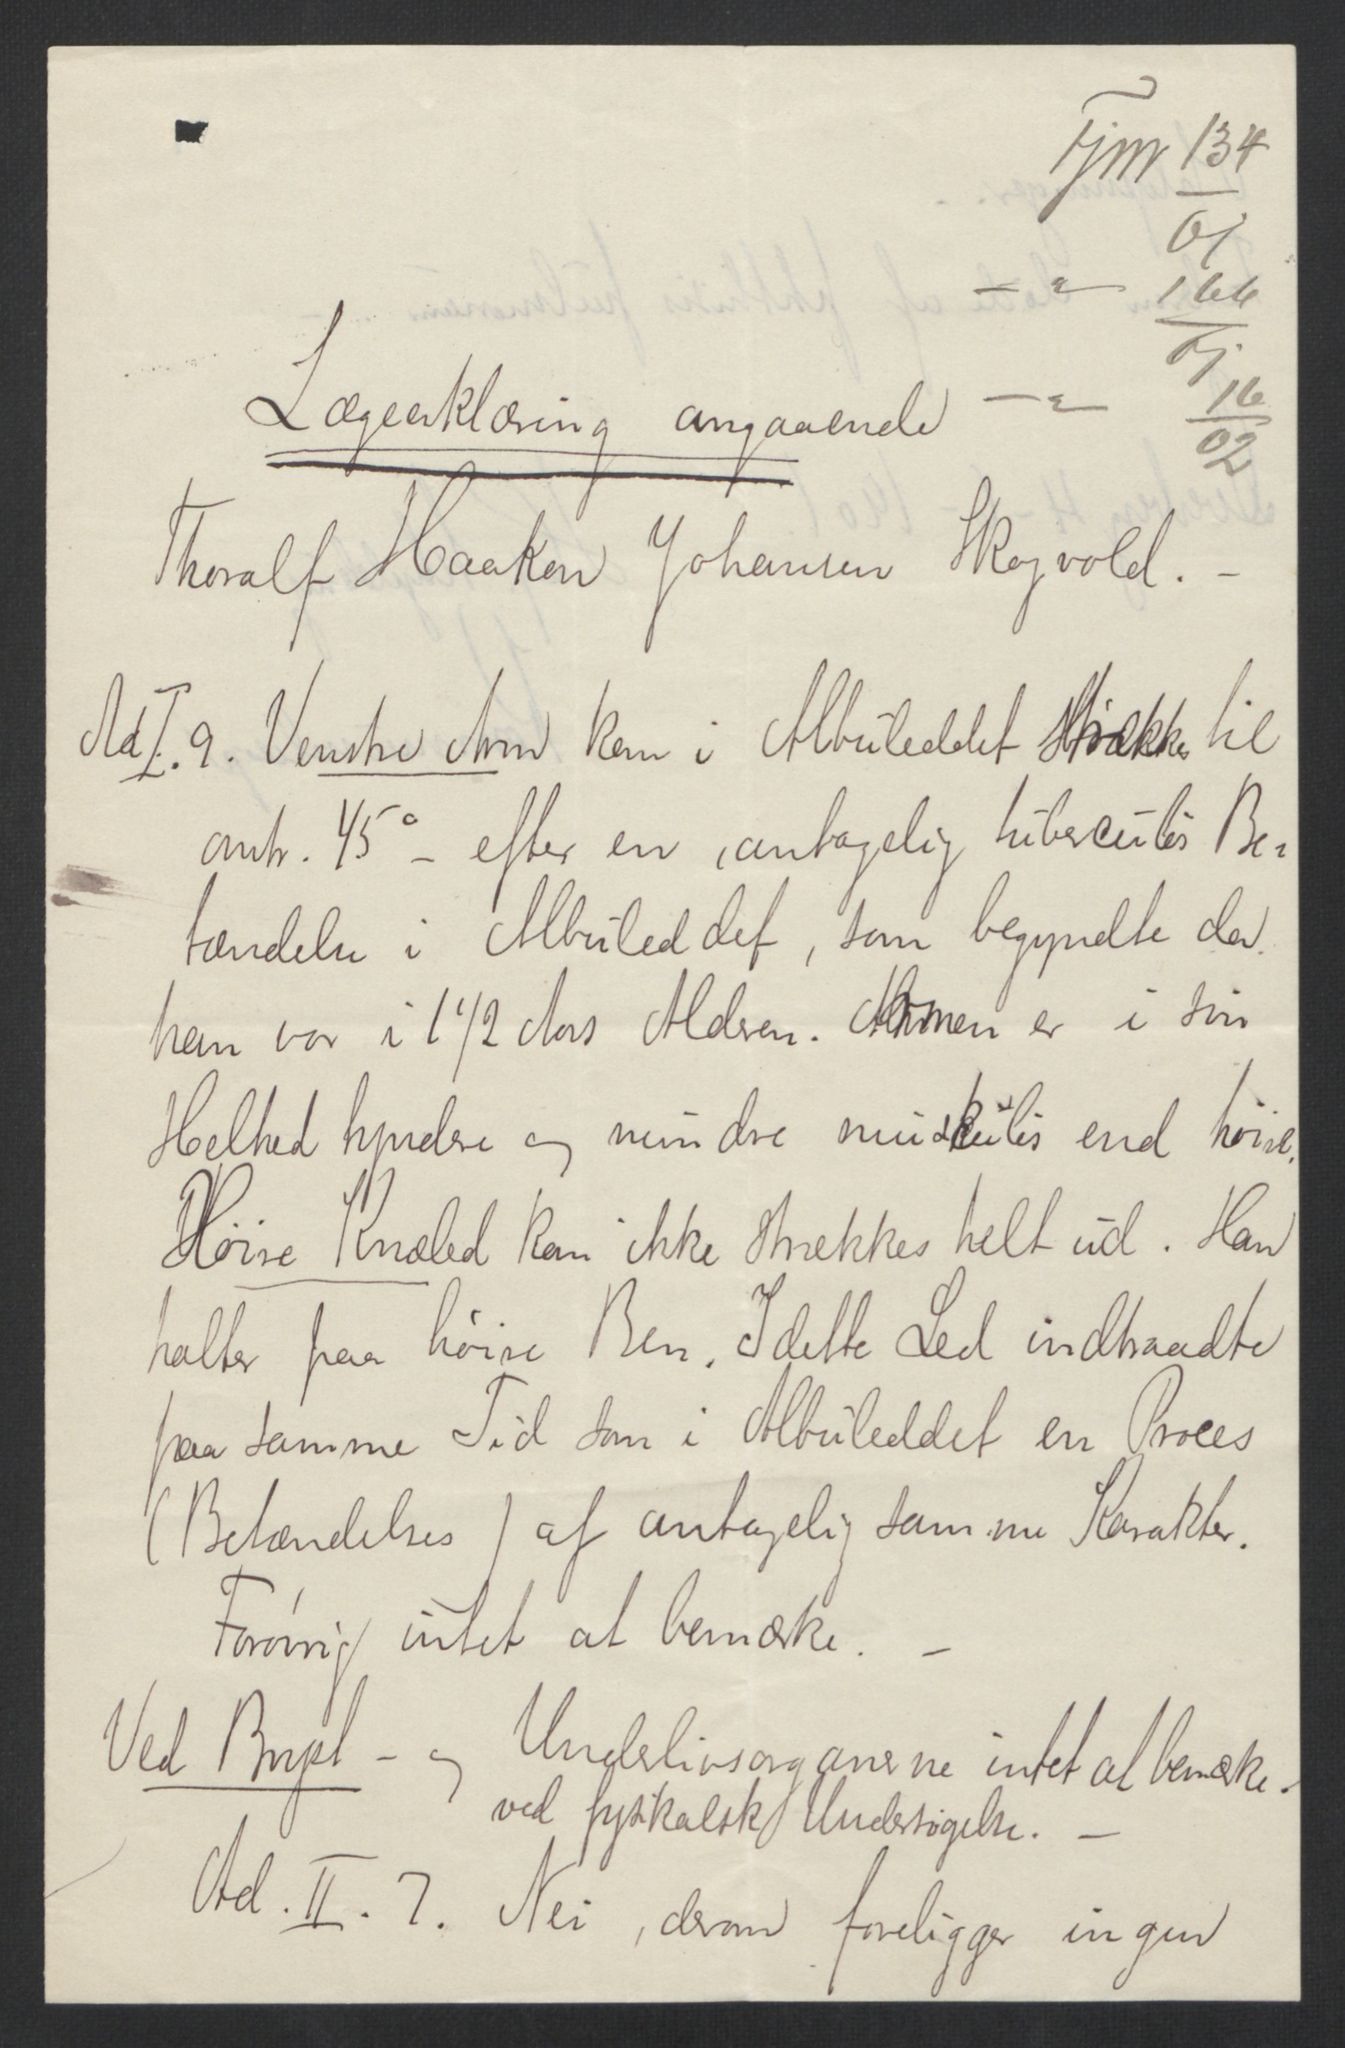 Fjm 134
01
— " — 166
01
Lægeerklæring angaaende — " — 16
02
Thoralf Haakon Johansen Skogvold. –
Ad I. 9. Venstre Arm kan i Albuleddet strækkes til
omtr. 45° – efter en, antagelig tuberculøs Be-
tændelse i Albuleddet, som begyndte da
han var i 1 1/2 Aars Alderen. Armen er i sin
Helhed tyndere og mindre muskuløs end høire.
Høire Knæled kan ikke strækkes helt ud. Han
halter paa høire Ben. I dette Led indtraadte
paa samme Tid som i Albuleddet en Proces
(Betændelses) af antagelig samme Karakter.
Forøvrig intet at bemærke. –
Ved Bryst- og Underlivsorganerne intet at bemærke
ved fysikalsk Undersøgelse. –
Ad. II. 7. Nei, derom foreligger ingen